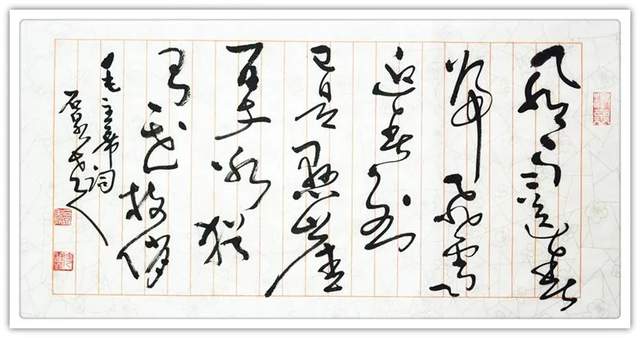 风雨送春
归飞雪
迎春到
已是悬崖
百丈冰犹
有花枝俏
毛主席词
石泉